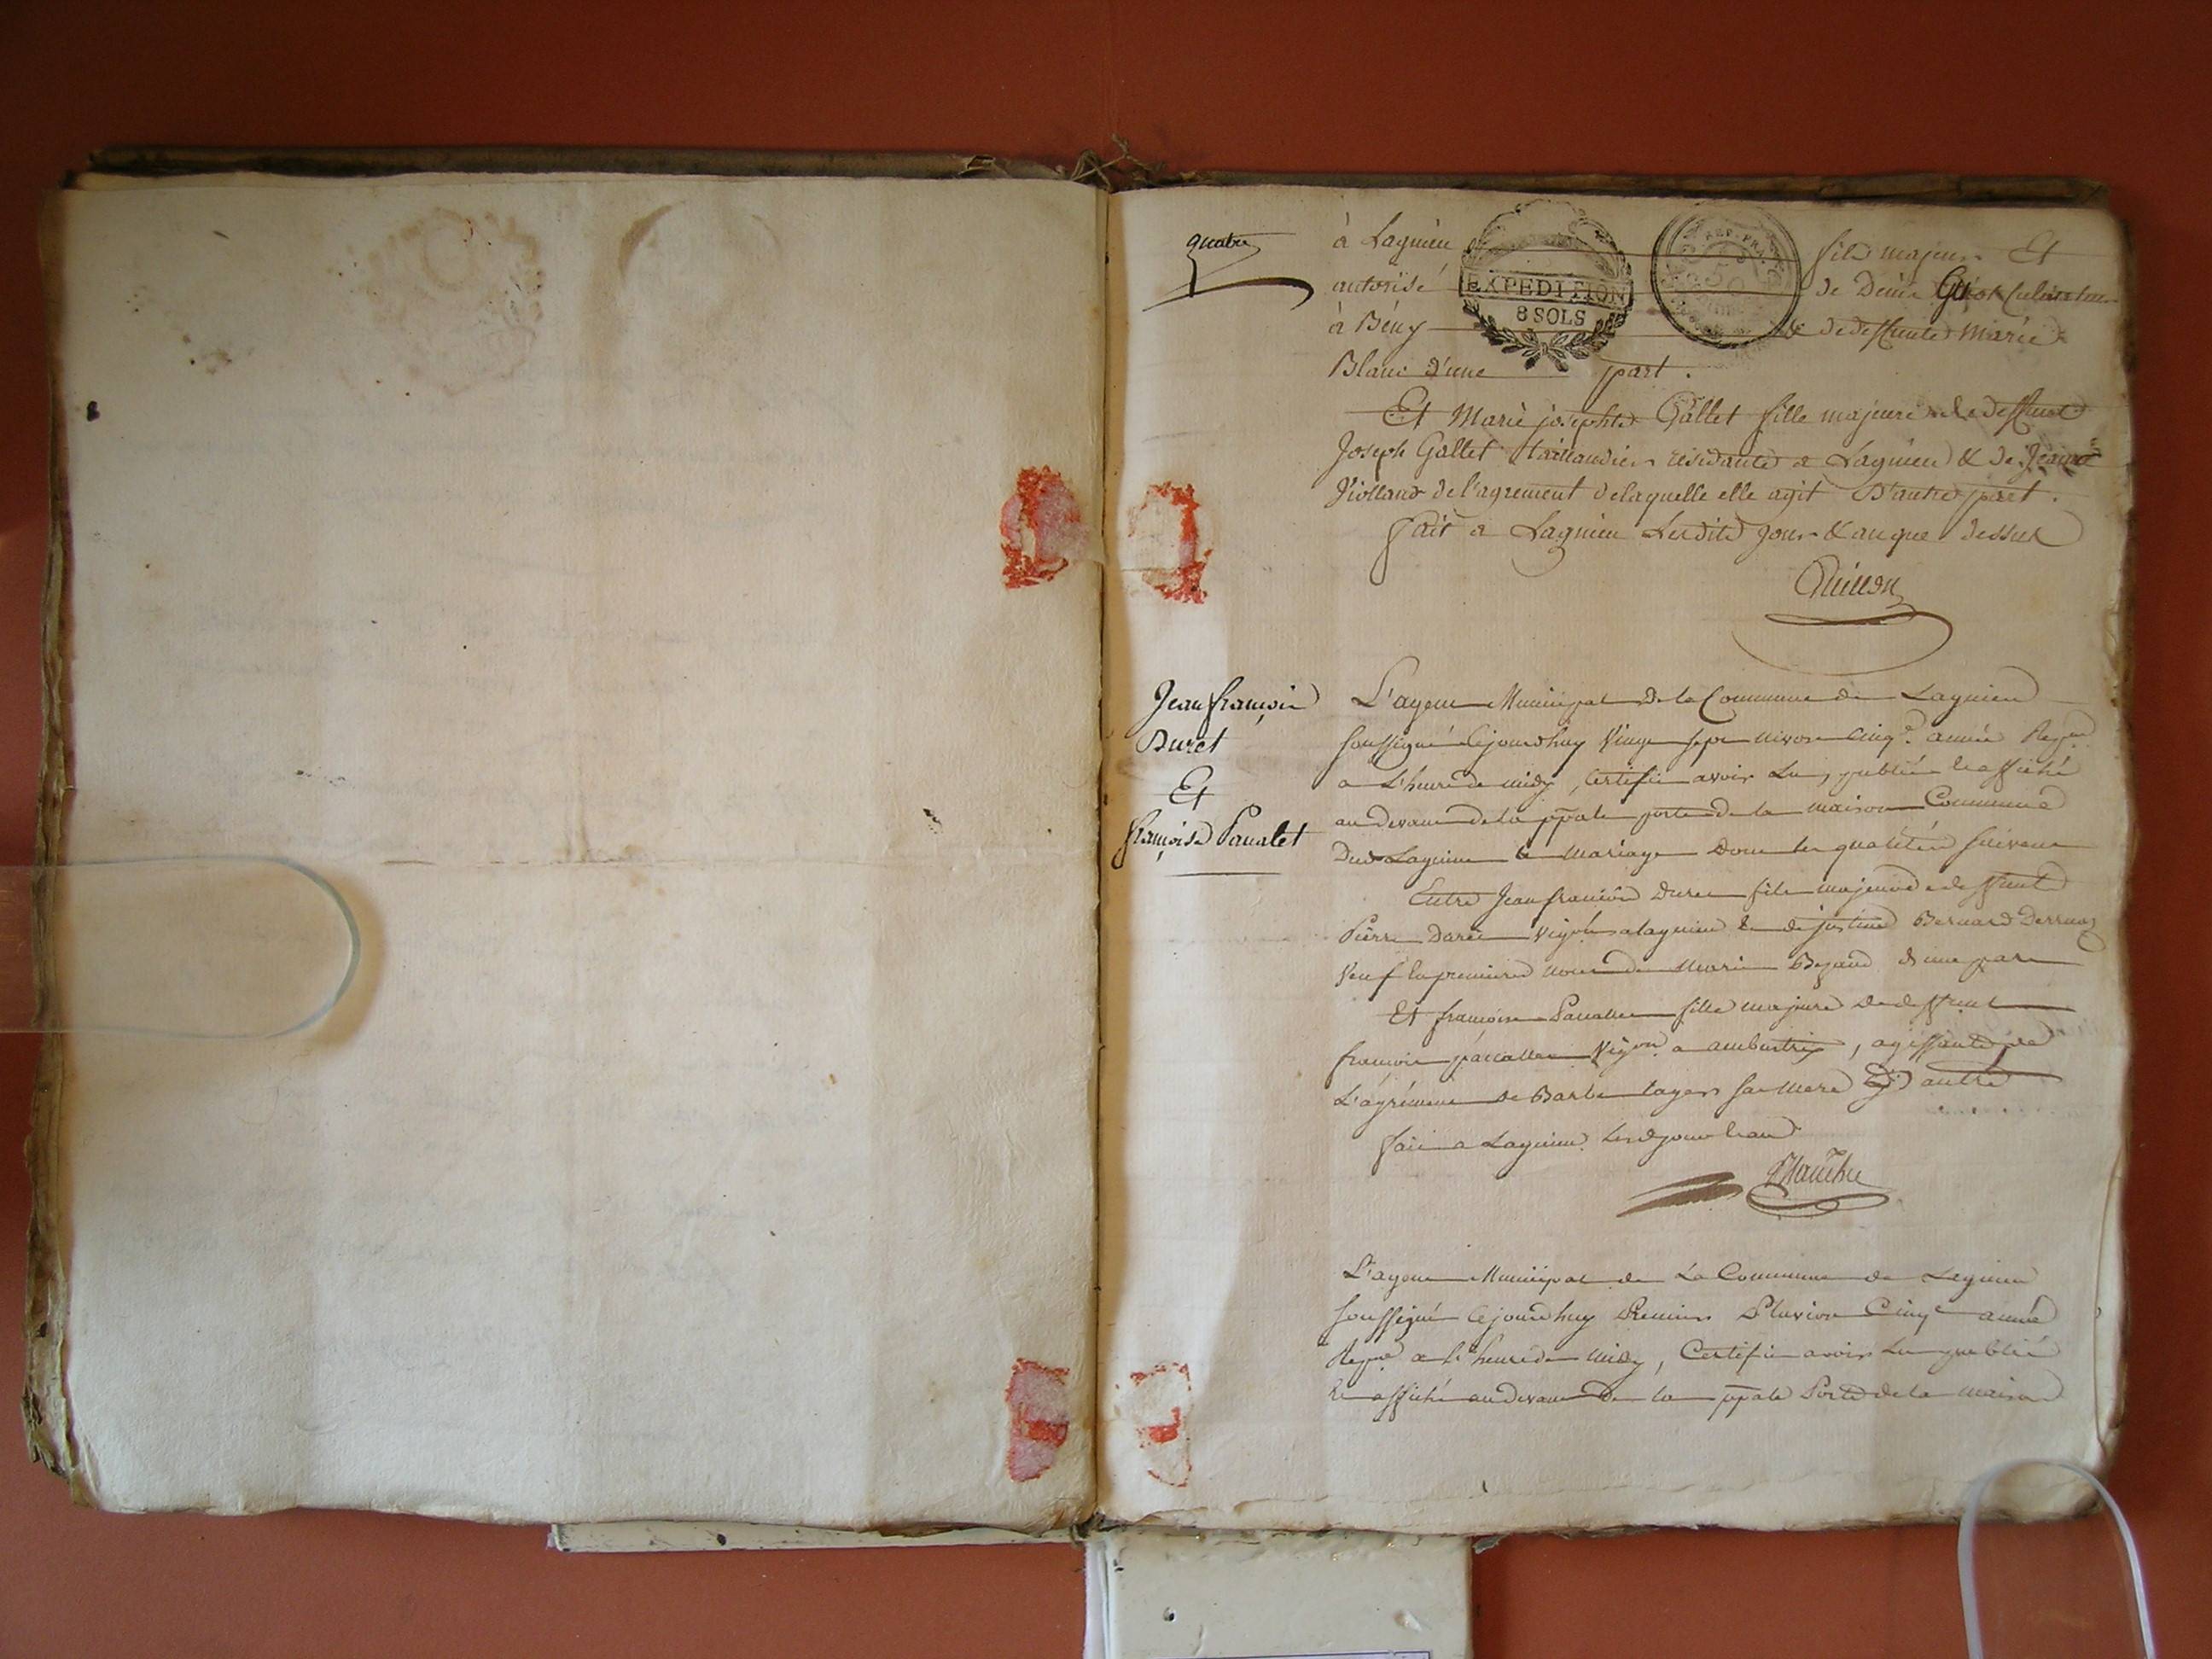 quatre
à Lagnieu fils majeur Et
autorisé de Denis Guiot Cultivateur
à Bény & de deffunte Marie
Blanc d'une part.
EXPEDITION
8 SOLS
REP. FRA.
50
Et Marie josephte Gallet fille majeure de deffunt
Joseph Gallet taillandier résidante a Lagnieu & de Jeanne
Violland de l'agrement de laquelle elle agit D'autre part.
fait a Lagnieu Lesdits jour & an que dessus
Jean françois
Duret
Et
françoise Panalet
L'agent Municipal de la Commune de Lagnieu
soussigné cejourdhuy Vingt sept nivose cinq.e année Repne
a L'heure de midy, certifie avoir Lu, publié & affiché
au devant de la ppale porte de la maison Commune
dud Lagnieu le Mariage Dont les qualités suivent
Entre Jean françois Duret fils majeur de deffunt
Pierre Duret Vigon a lagnieu & de justine Bernard
Veuf en premieres noces de Marie d'une part
Et françoise Panallet fille majeure de deffunt
françois panallet Vigon a ambutrix, agissante de
L'agrément de Barbe tayer sa mere d'autre
fait a Lagnieu lesd jour & an
L'agent Municipal de La Commune de Lagnieu
soussigné Cejourdhuy Premier Pluviose Cinqe année
Repne a L'heure de midy, Certifie avoir Lu publié
& affiché au devant De la ppale Porte de la maison